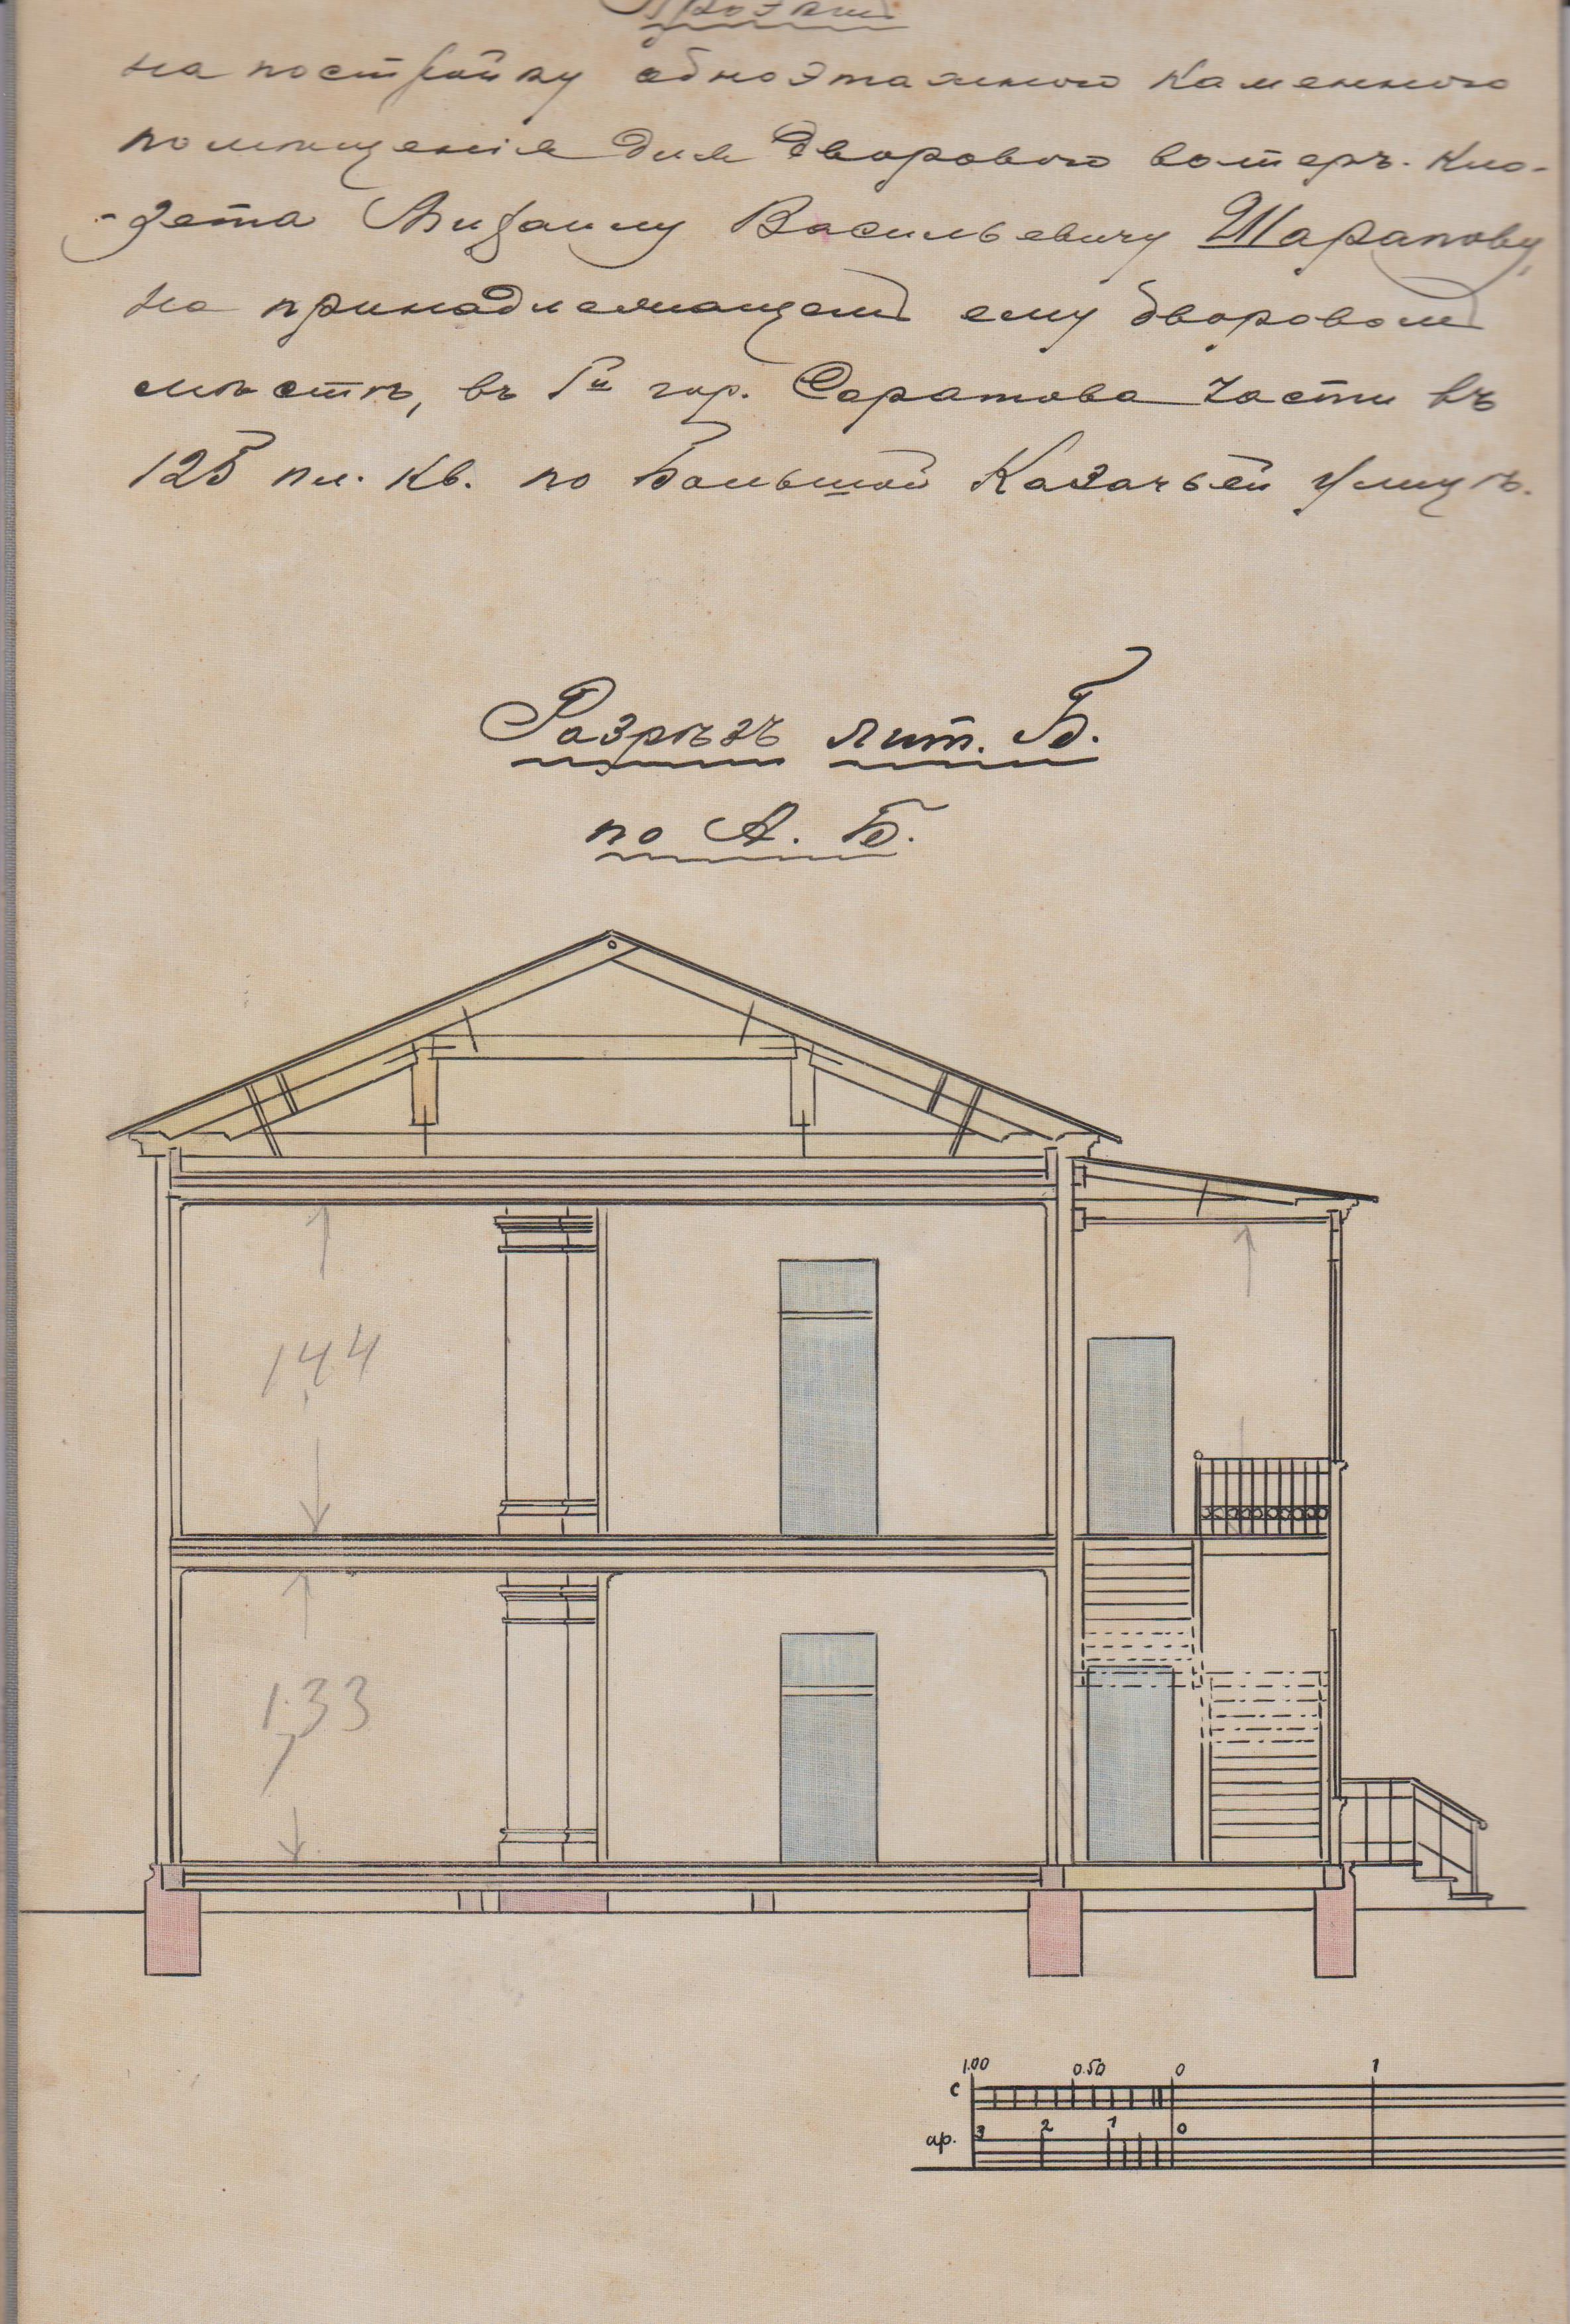 Проэктъ
на постройку одноэтажного каменного
помѣщенiя для дворового ватеръ-кло-
-зета Михаилу Васильевичу Шарапову,
на принадлежащемъ ему дворовомъ
мѣстѣ, въ 1й гор. Саратова части въ
125 пл. кв. по Большой Казачьей улицѣ.
Разрѣзъ лит. Б.
по А. Б.
1,44
1,33
1.00 0.50 0 1
с
ар. 3 2 1 0